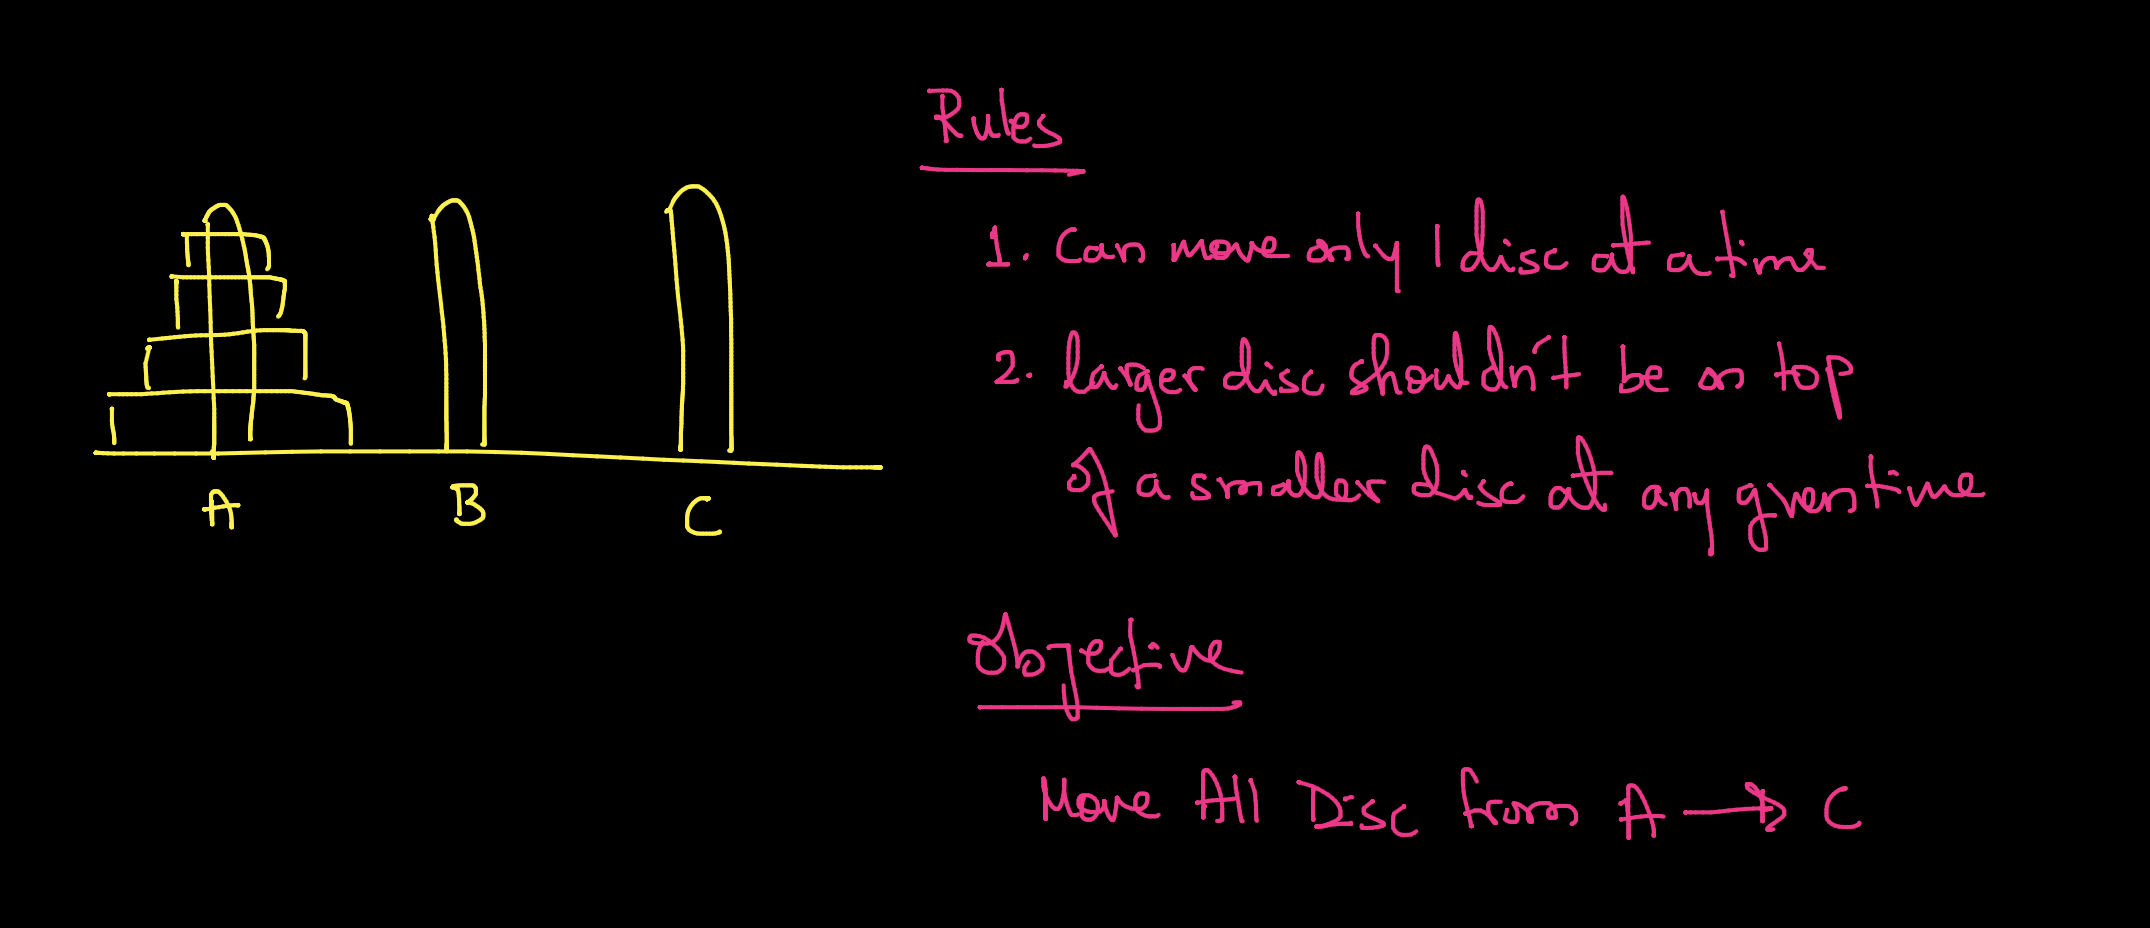 Rules
1. Can move only 1 disc at a time
2. larger disc shouldn't be on top
of a smaller disc at any given time
A B C
Objective
Move All Disc from A → C